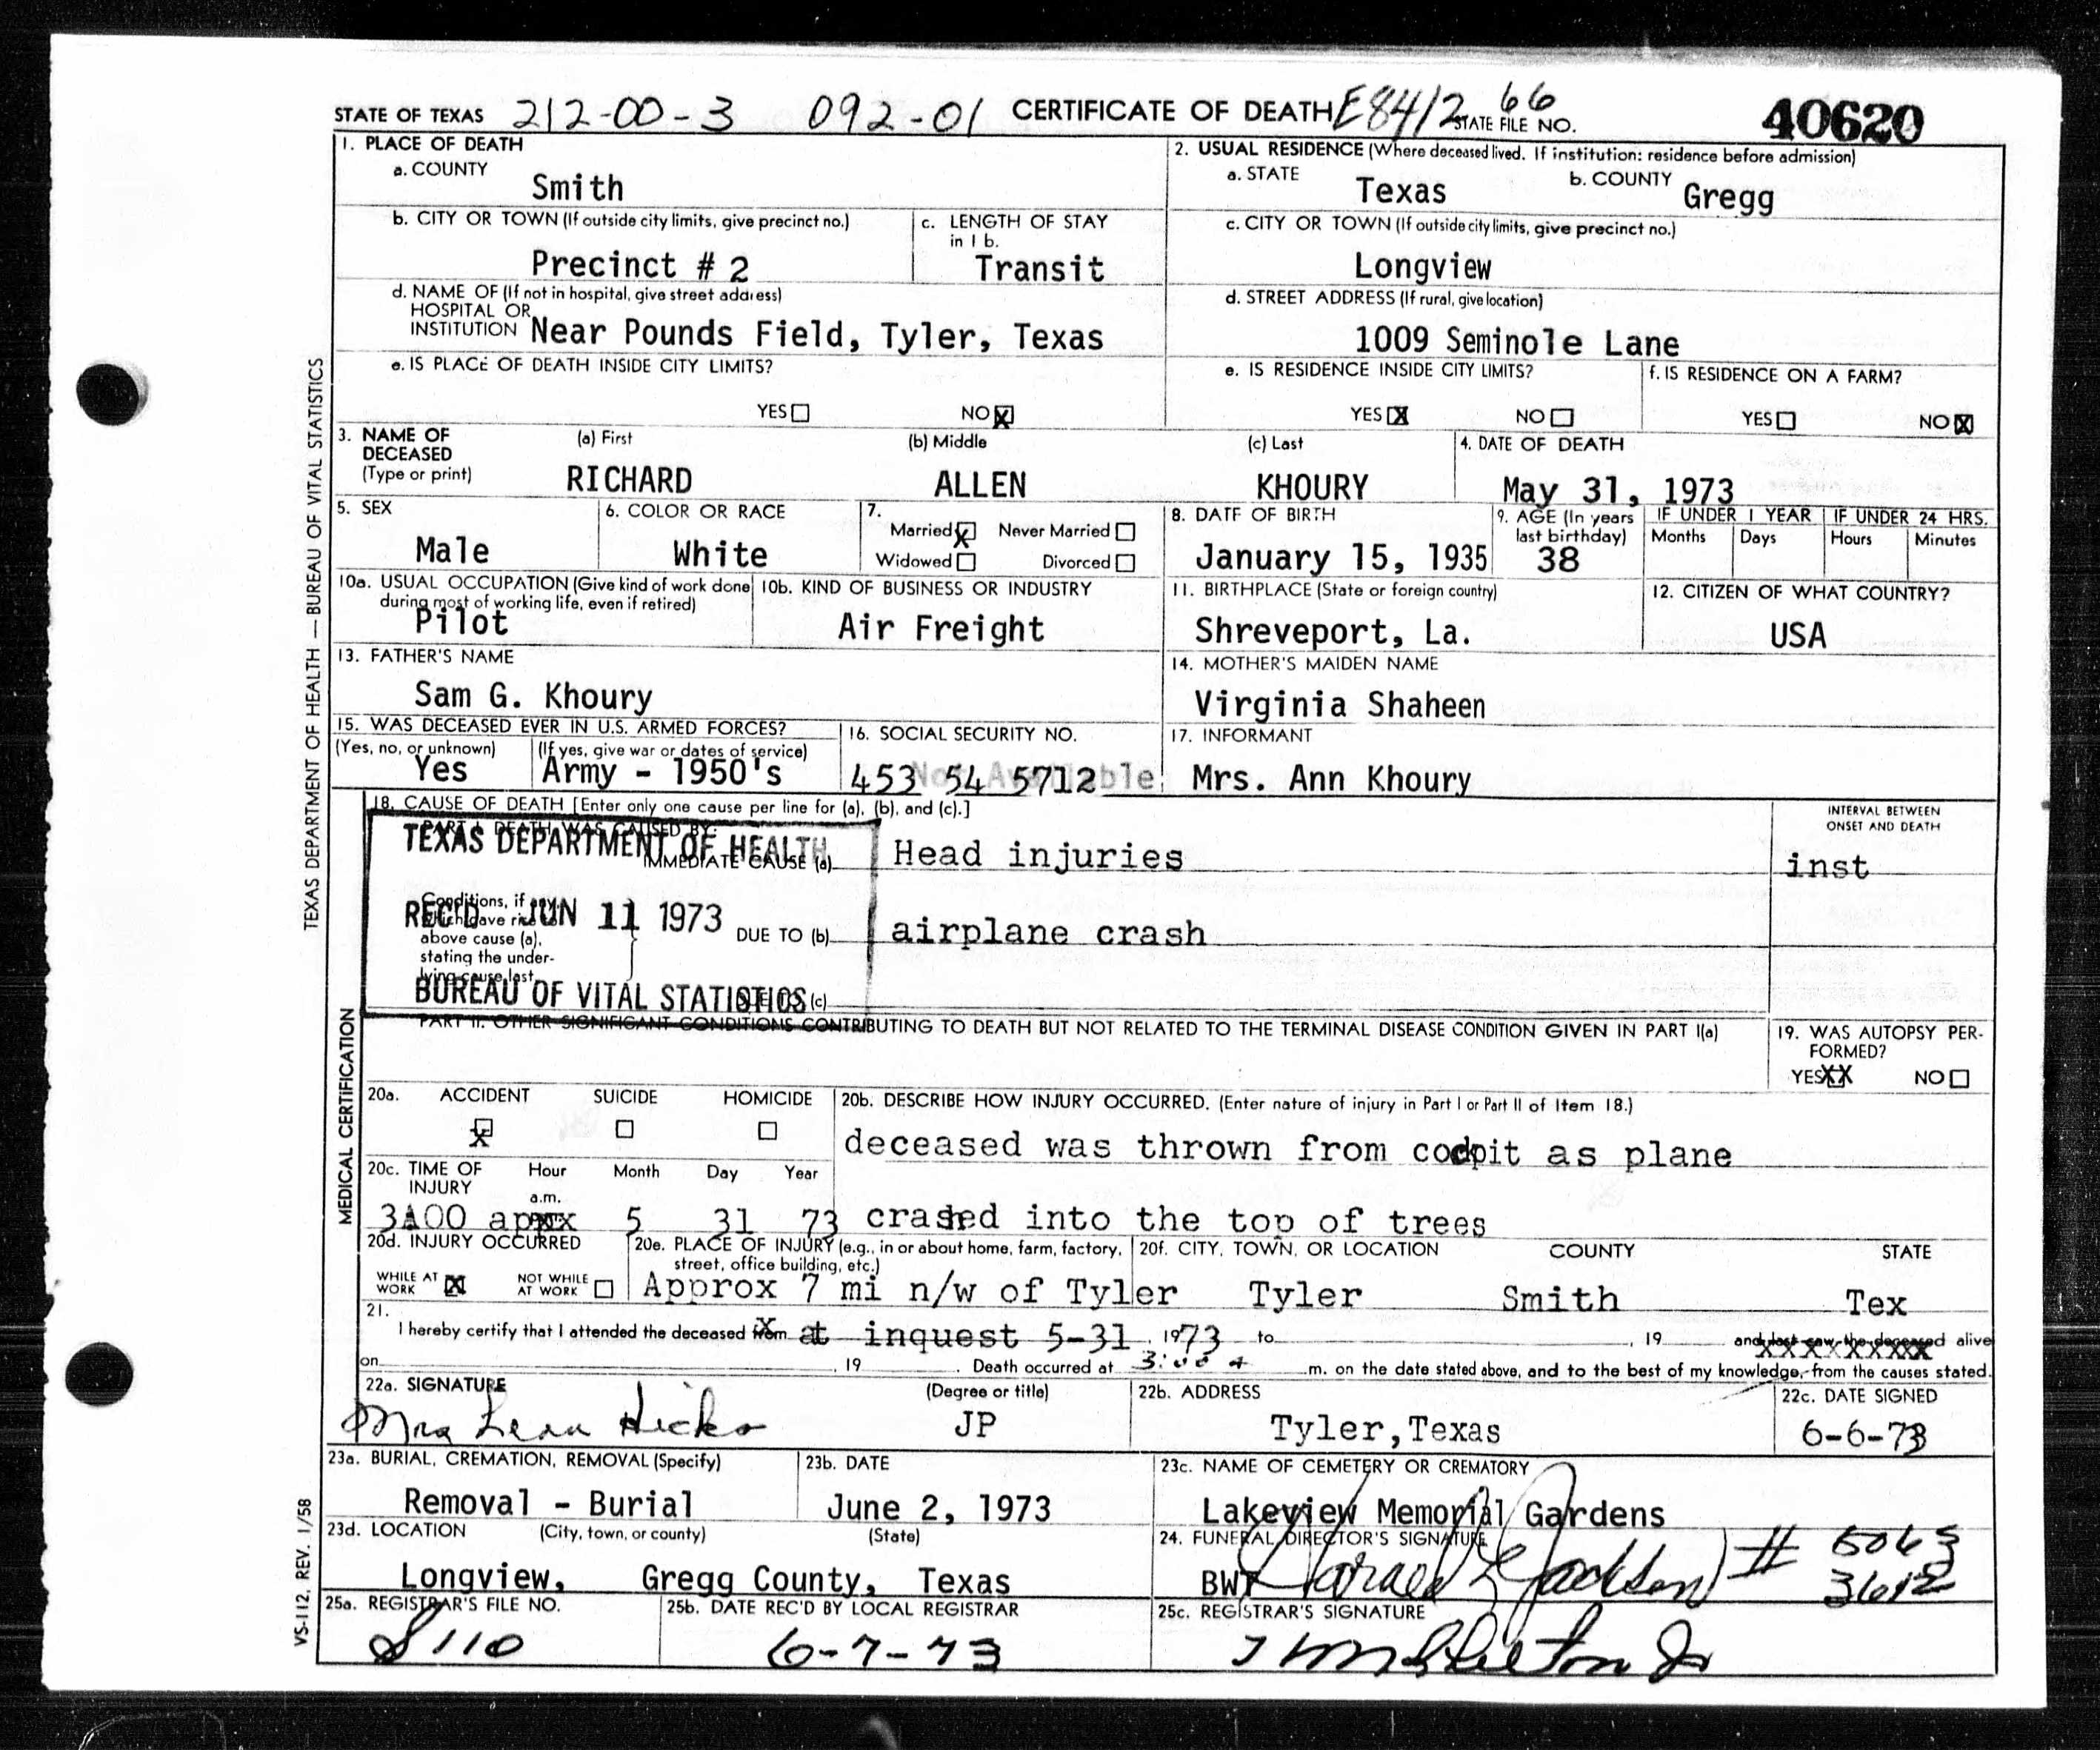 STATE OF TEXAS 212-00-3 092-01 CERTIFICATE OF DEATH E8412 66 STATE FILE NO. 40620
1. PLACE OF DEATH
a. COUNTY
Smith
2. USUAL RESIDENCE (Where deceased lived. If institution: residence before admission)
a. STATE Texas b. COUNTY Gregg
b. CITY OR TOWN (If outside city limits, give precinct no.)
Precinct # 2
c. LENGTH OF STAY in 1 b.
Transit
c. CITY OR TOWN (If outside city limits, give precinct no.)
Longview
d. NAME OF (If not in hospital, give street address)
HOSPITAL OR
INSTITUTION Near Pounds Field, Tyler, Texas
d. STREET ADDRESS (If rural, give location)
1009 Seminole Lane
e. IS PLACE OF DEATH INSIDE CITY LIMITS?
YES NO X
e. IS RESIDENCE INSIDE CITY LIMITS?
YES X NO
f. IS RESIDENCE ON A FARM?
YES NO X
3. NAME OF DECEASED (Type or print)
(a) First (b) Middle (c) Last
RICHARD ALLEN KHOURY
4. DATE OF DEATH
May 31, 1973
5. SEX
Male
6. COLOR OR RACE
White
7.
Married X Never Married
Widowed Divorced
8. DATE OF BIRTH
January 15, 1935
9. AGE (In years last birthday)
38
IF UNDER 1 YEAR
Months Days
IF UNDER 24 HRS.
Hours Minutes
10a. USUAL OCCUPATION (Give kind of work done during most of working life, even if retired)
Pilot
10b. KIND OF BUSINESS OR INDUSTRY
Air Freight
11. BIRTHPLACE (State or foreign country)
Shreveport, La.
12. CITIZEN OF WHAT COUNTRY?
USA
13. FATHER'S NAME
Sam G. Khoury
14. MOTHER'S MAIDEN NAME
Virginia Shaheen
15. WAS DECEASED EVER IN U.S. ARMED FORCES?
(Yes, no, or unknown) (If yes, give war or dates of service)
Yes Army - 1950's
16. SOCIAL SECURITY NO.
Not Available
453 54 5712
17. INFORMANT
Mrs. Ann Khoury
18. CAUSE OF DEATH [Enter only one cause per line for (a), (b), and (c).]
PART I. DEATH WAS CAUSED BY:
IMMEDIATE CAUSE (a) Head injuries
INTERVAL BETWEEN ONSET AND DEATH
inst
Conditions, if any, which gave rise to above cause (a), stating the underlying cause last.
DUE TO (b) airplane crash
DUE TO (c)
TEXAS DEPARTMENT OF HEALTH
REC'D JUN 11 1973
BUREAU OF VITAL STATISTICS
PART II. OTHER SIGNIFICANT CONDITIONS CONTRIBUTING TO DEATH BUT NOT RELATED TO THE TERMINAL DISEASE CONDITION GIVEN IN PART I(a)
19. WAS AUTOPSY PERFORMED?
YES XX NO
20a. ACCIDENT SUICIDE HOMICIDE
X
20b. DESCRIBE HOW INJURY OCCURRED. (Enter nature of injury in Part I or Part II of Item 18.)
deceased was thrown from cockpit as plane
crashed into the top of trees
20c. TIME OF INJURY Hour Month Day Year
a.m.
3:00 5 31 73
20d. INJURY OCCURRED
WHILE AT WORK X NOT WHILE AT WORK
20e. PLACE OF INJURY (e.g., in or about home, farm, factory, street, office building, etc.)
Approx 7 mi n/w of Tyler
20f. CITY, TOWN, OR LOCATION COUNTY STATE
Tyler Smith Tex
21.
I hereby certify that I attended the deceased from at inquest 5-31, 1973 to , 19 and last saw the deceased alive
on , 19 . Death occurred at 3:00 a m. on the date stated above, and to the best of my knowledge, from the causes stated.
22a. SIGNATURE (Degree or title)
Mrs Lena Hicks JP
22b. ADDRESS
Tyler,Texas
22c. DATE SIGNED
6-6-73
23a. BURIAL, CREMATION, REMOVAL (Specify)
Removal - Burial
23b. DATE
June 2, 1973
23c. NAME OF CEMETERY OR CREMATORY
Lakeview Memorial Gardens
23d. LOCATION (City, town, or county) (State)
Longview, Gregg County, Texas
24. FUNERAL DIRECTOR'S SIGNATURE
Jackson # 5063
3612
25a. REGISTRAR'S FILE NO.
S110
25b. DATE REC'D BY LOCAL REGISTRAR
6-7-73
25c. REGISTRAR'S SIGNATURE
TEXAS DEPARTMENT OF HEALTH — BUREAU OF VITAL STATISTICS
MEDICAL CERTIFICATION
VS-112, REV. 1/58